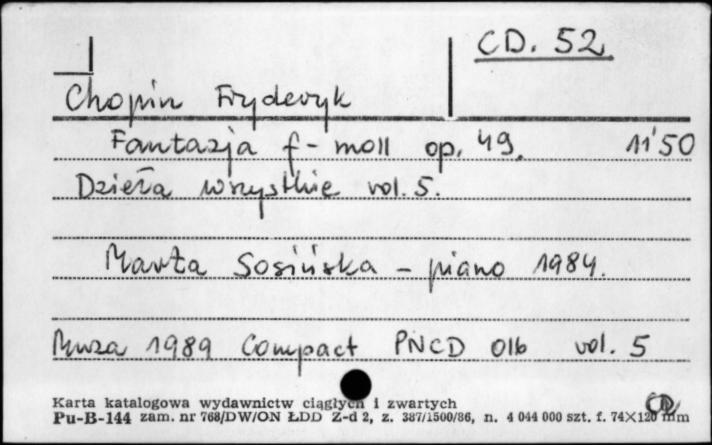 CD. 52
Chopin Fryderyk
Fantazja f-moll op. 49. 11'50
Dzieła wszystkie vol. 5.
Marta Sosińska - piano 1984.
Muza 1989 Compact PNCD 016 vol. 5
Karta katalogowa wydawnictw ciągłych i zwartych
Pu-B-144 zam. nr 768/DW/ON ŁDD Z-d 2, z. 387/1500/86, n. 4 044 000 szt. f. 74X120 mm
CD